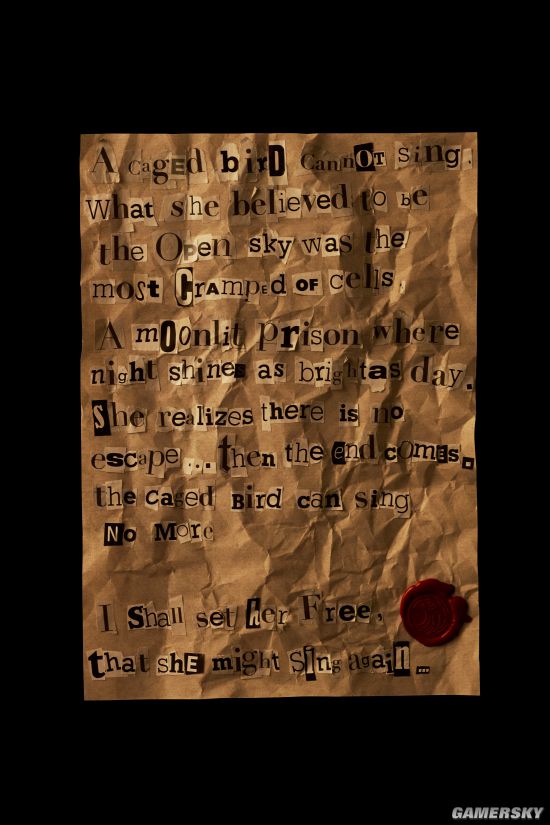 A caged bird cannot sing.
What she believed to be
the Open sky was the
most Cramped of cells.
A moonlit prison, where
night shines as bright as day.
She realizes there is no
escape... then the end comes.
the caged Bird can sing
No More
I Shall set Her Free,
that shE might Sing again...
GAMERSKY